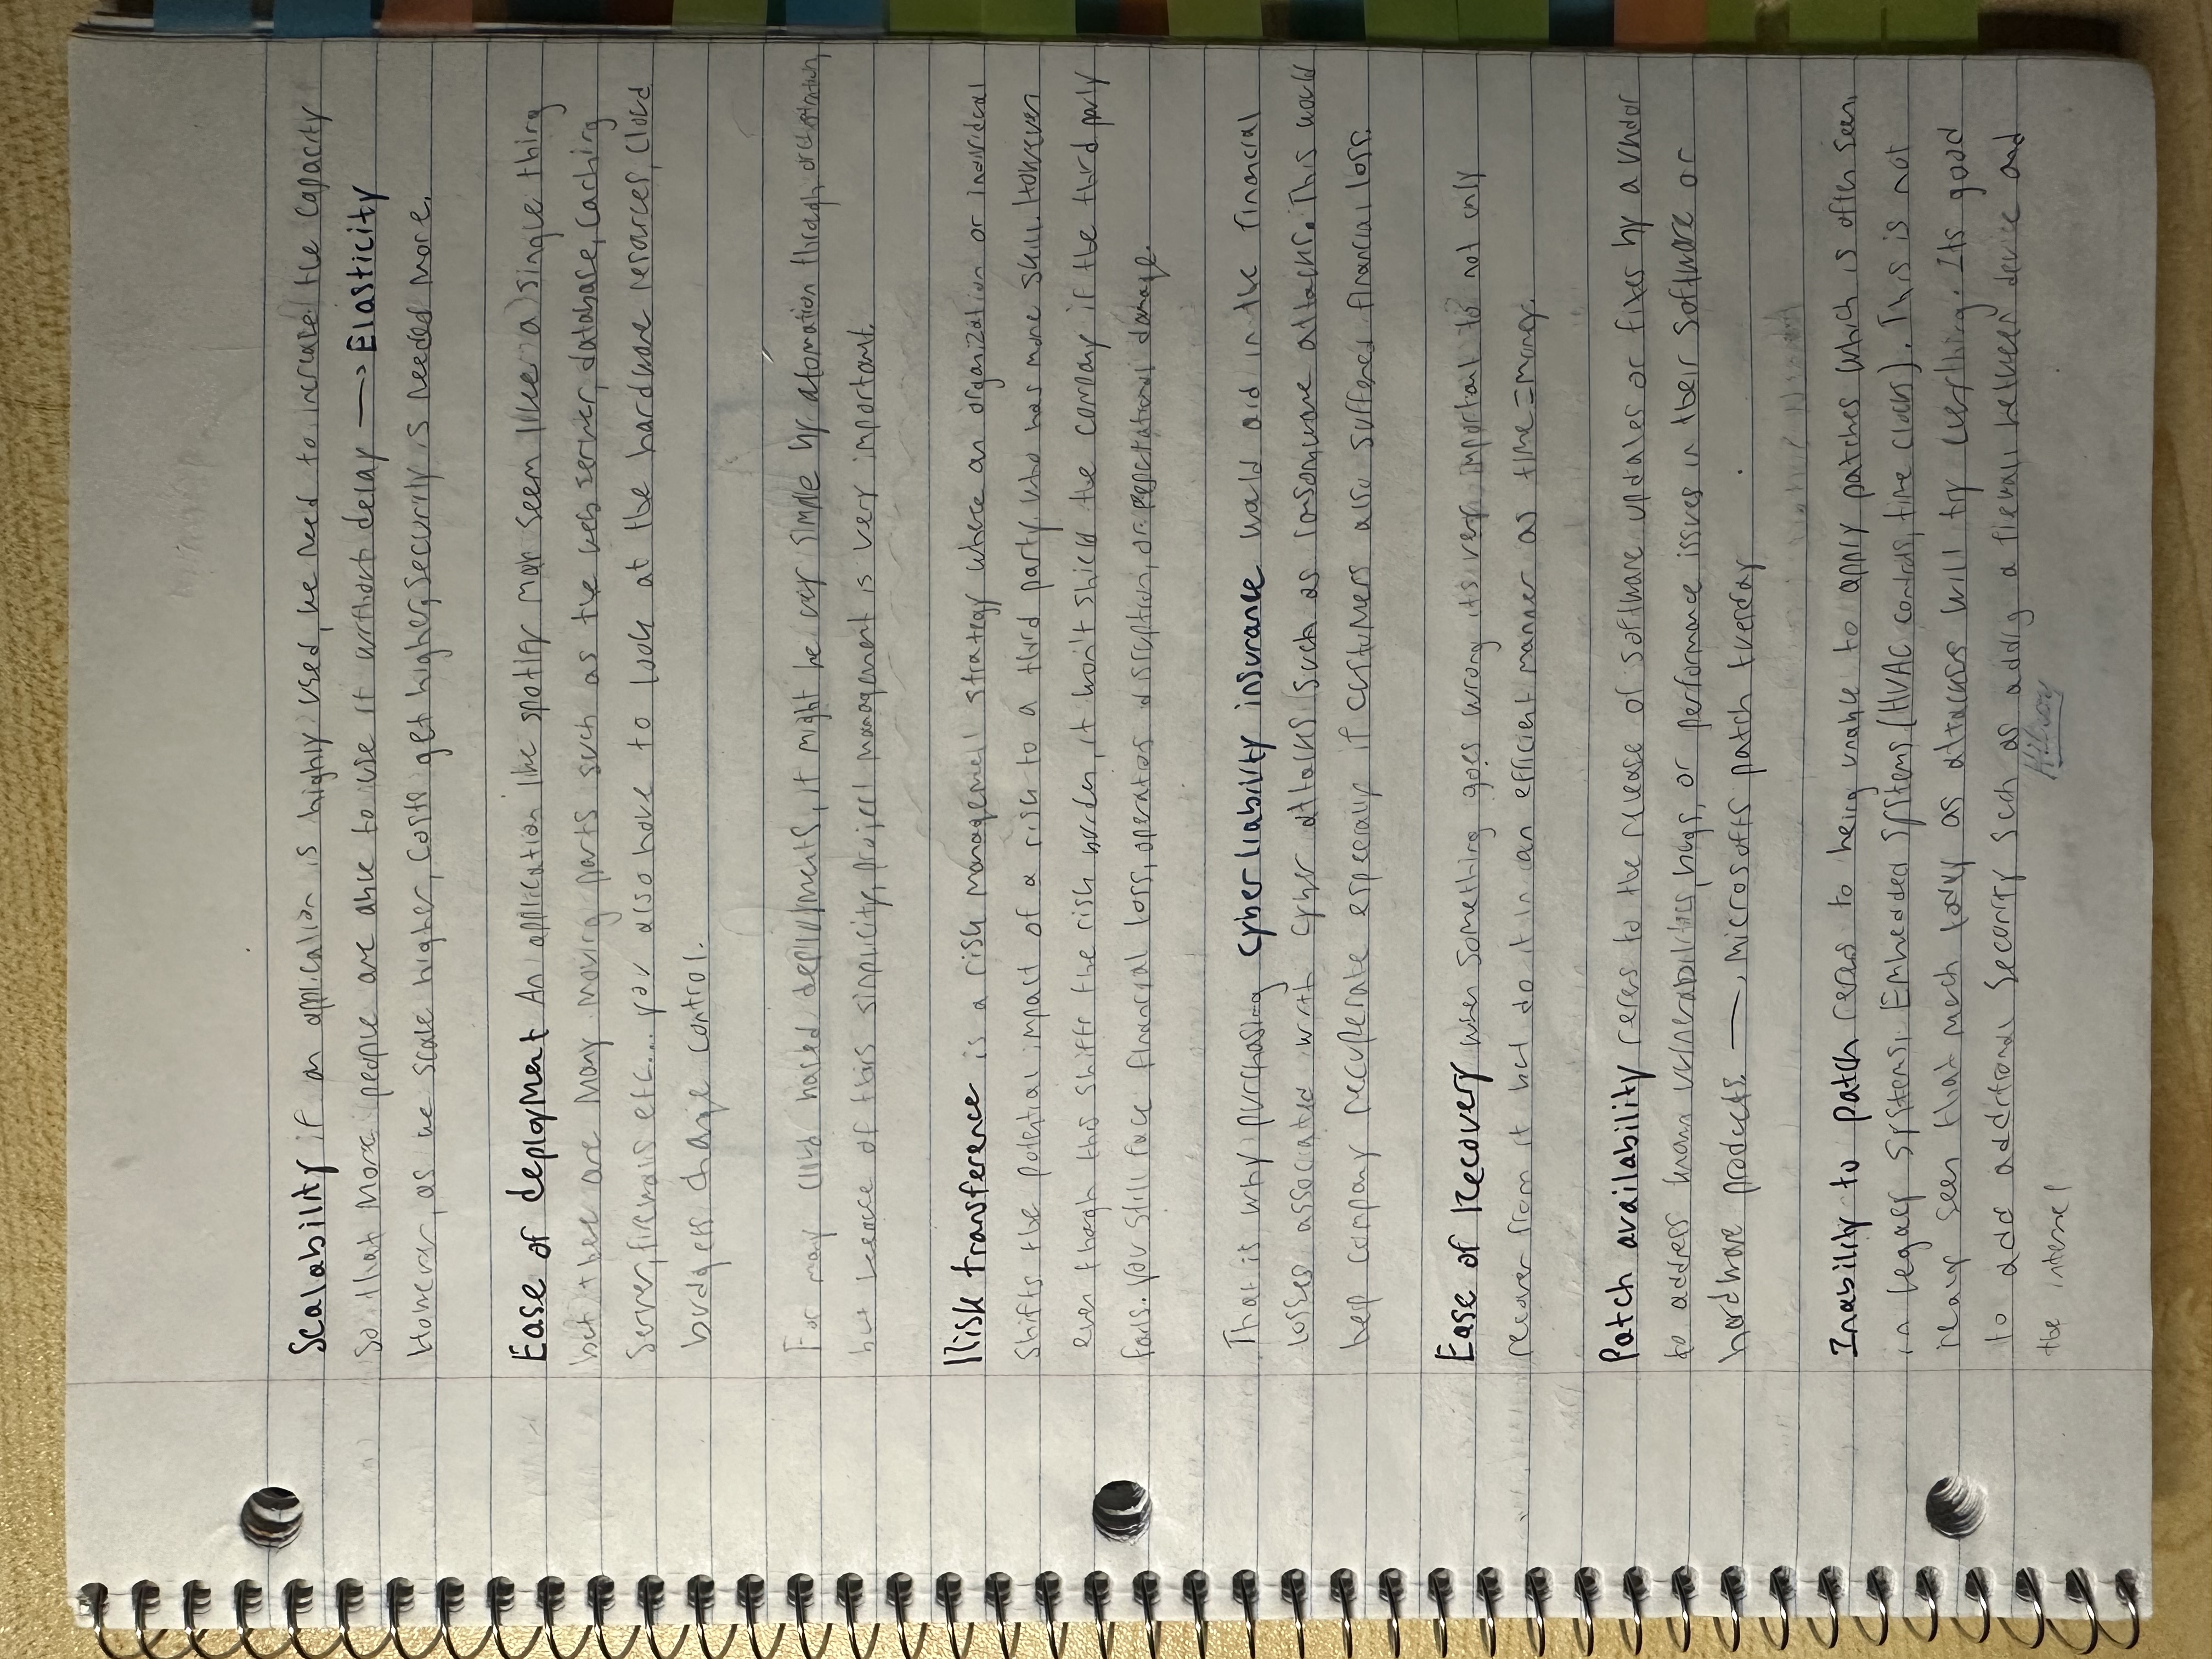 Scalability if an application is highly used, we need to increase the capacity
so that more people are able to use it without delay → Elasticity
However, as we scale higher, costs get higher, security is needed more.
Ease of deployment An application like spotify may seem like a single thing
but there are many moving parts such as the web server, database, caching
server, firewalls etc... you also have to look at the hardware resources, cloud
budgets change control.
For many cloud based deployments, it might be very simple by atomation through orchestration,
but because of this simplicity, project management is very important.
Risk transference is a risk management strategy where an organization or individual
shifts the potential impact of a risk to a third party who has more skill. However
even though this shifts the risk burden, it won't shield the company if the third party
fails. You still face financial loss, operation disruption, or reputational damage.
That is why purchasing cyber liability insurance would aid in the financial
losses associated with cyber attacks such as ransomware attacks. This would
help company recuperate especially if customers also suffered financial loss.
Ease of Recovery when something goes wrong its very important to not only
recover from it but do it in an efficient manner as time = money.
Patch availability refers to the release of software updates or fixes by a vendor
to address known vulnerabilities, bugs, or performance issues in their software or
hardware products. → Microsofts patch tuesday
Inability to patch refers to being unable to apply patches which is often seen
in legacy systems, Embedded systems (HVAC controls, time clocks). This is not
really seen that much today as attackers will try everything. Its good
to add additional security such as adding a firewall between device and
the internet